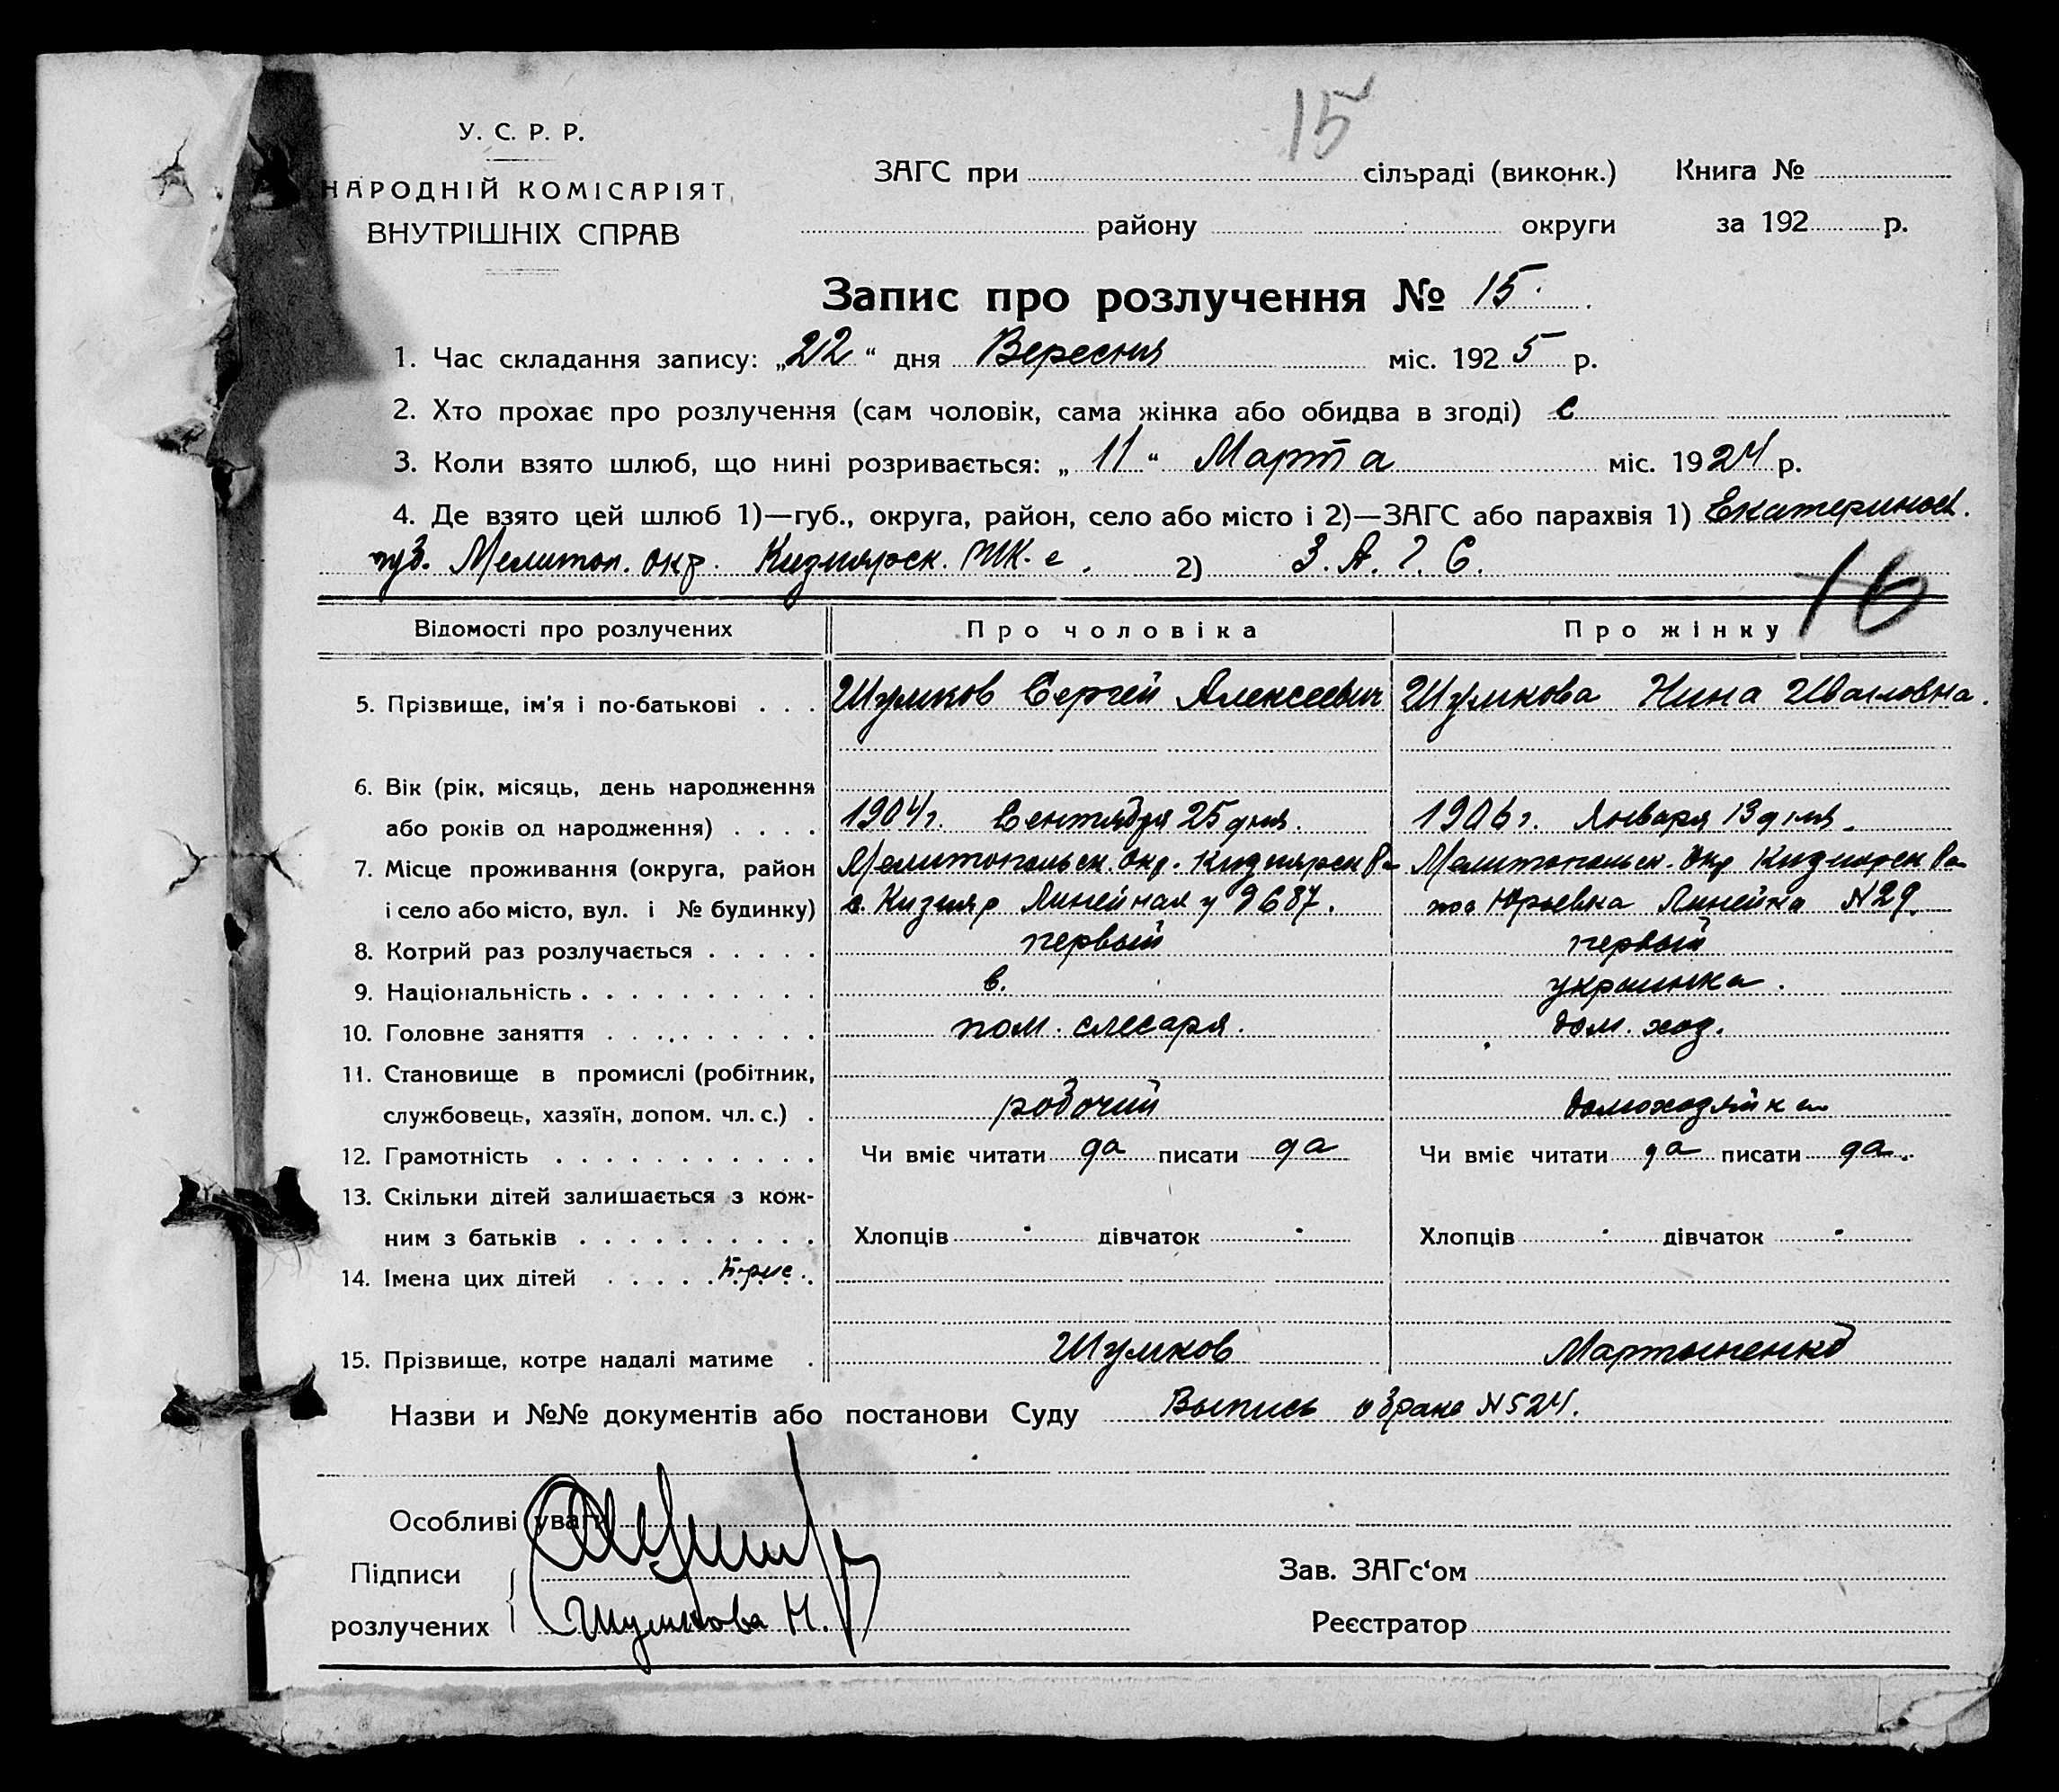 15
У. С. Р. Р.
НАРОДНІЙ КОМІСАРІЯТ
ВНУТРІШНІХ СПРАВ
ЗАГС при сільраді (виконк.) Книга №
району округи за 192 р.
Запис про розлучення № 15.
1. Час складання запису: „22“ дня Вересня міс. 1925 р.
2. Хто прохає про розлучення (сам чоловік, сама жінка або обидва в згоді) с
3. Коли взято шлюб, що нині розривається: „11“ Марта міс. 1924 р.
4. Де взято цей шлюб 1)—губ., округа, район, село або місто і 2)—ЗАГС або парахвія 1) Екатеринос.
губ. Мелитоп. окр. Кизиярск. РИК. 2) З. А. Г. С.
16
Відомості про розлучених Про чоловіка Про жінку
5. Прізвище, ім'я і по-батькові . . . Шумков Сергей Алексеевич Шумкова Нина Ивановна.
6. Вік (рік, місяць, день народження
або років од народження) . . . . 1904 г. Сентября 25 дня. 1906 г. Января 13 дня.
7. Місце проживання (округа, район Мелитопольск. Окр. Кизиярск Ра Мелитопольск. Окр Кизиярск Ра
і село або місто, вул. і № будинку) с. Кизияр Линейная у 9687. пос Юрьевка Линейка №29.
8. Котрий раз розлучається . . . . . первый первый
9. Національність . . . . . . . . . . в. украинка.
10. Головне заняття . . . . . . . . . пом. слесаря. дом. хоз.
11. Становище в промислі (робітник,
службовець, хазяїн, допом. чл. с.) . робочий домохозяйка
12. Грамотність . . . . . . . . . . . Чи вміє читати да писати да Чи вміє читати да писати да.
13. Скільки дітей залишається з кож-
ним з батьків . . . . . . . . . . Хлопців дівчаток Хлопців дівчаток
14. Імена цих дітей . . . . .
15. Прізвище, котре надалі матиме . Шумков Мартыненко
Назви и №№ документів або постанови Суду Выпись о браке №524.
Особливі уваги
Підписи
розлучених Шумкова Н.
Зав. ЗАГс‘ом
Реєстратор